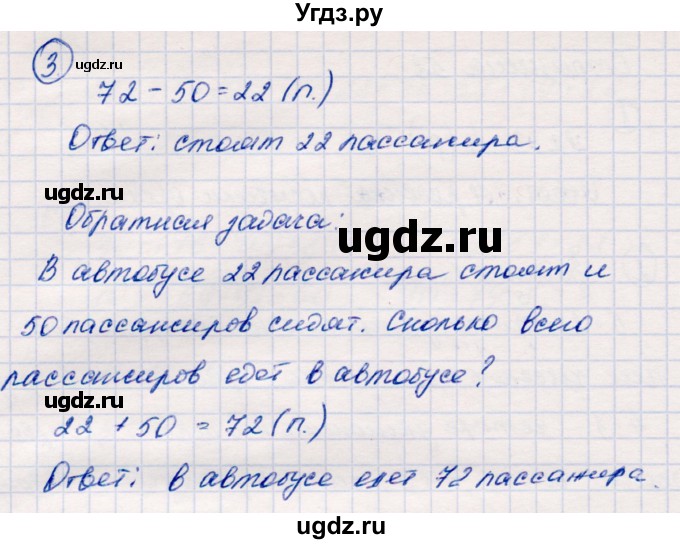 Угдз.ру
3
ugdz.ru
72 - 50 = 22 (п.)
Ответ: стоят 22 пассажира.
ugdz.ru
Обратная задача:
ugdz.ru
В автобусе 22 пассажира стоят и
50 пассажиров сидят. Сколько всего
пассажиров едет в автобусе?
ugdz.ru
22 + 50 = 72 (п.)
Ответ: в автобусе едет 72 пассажира.
ugdz.ru